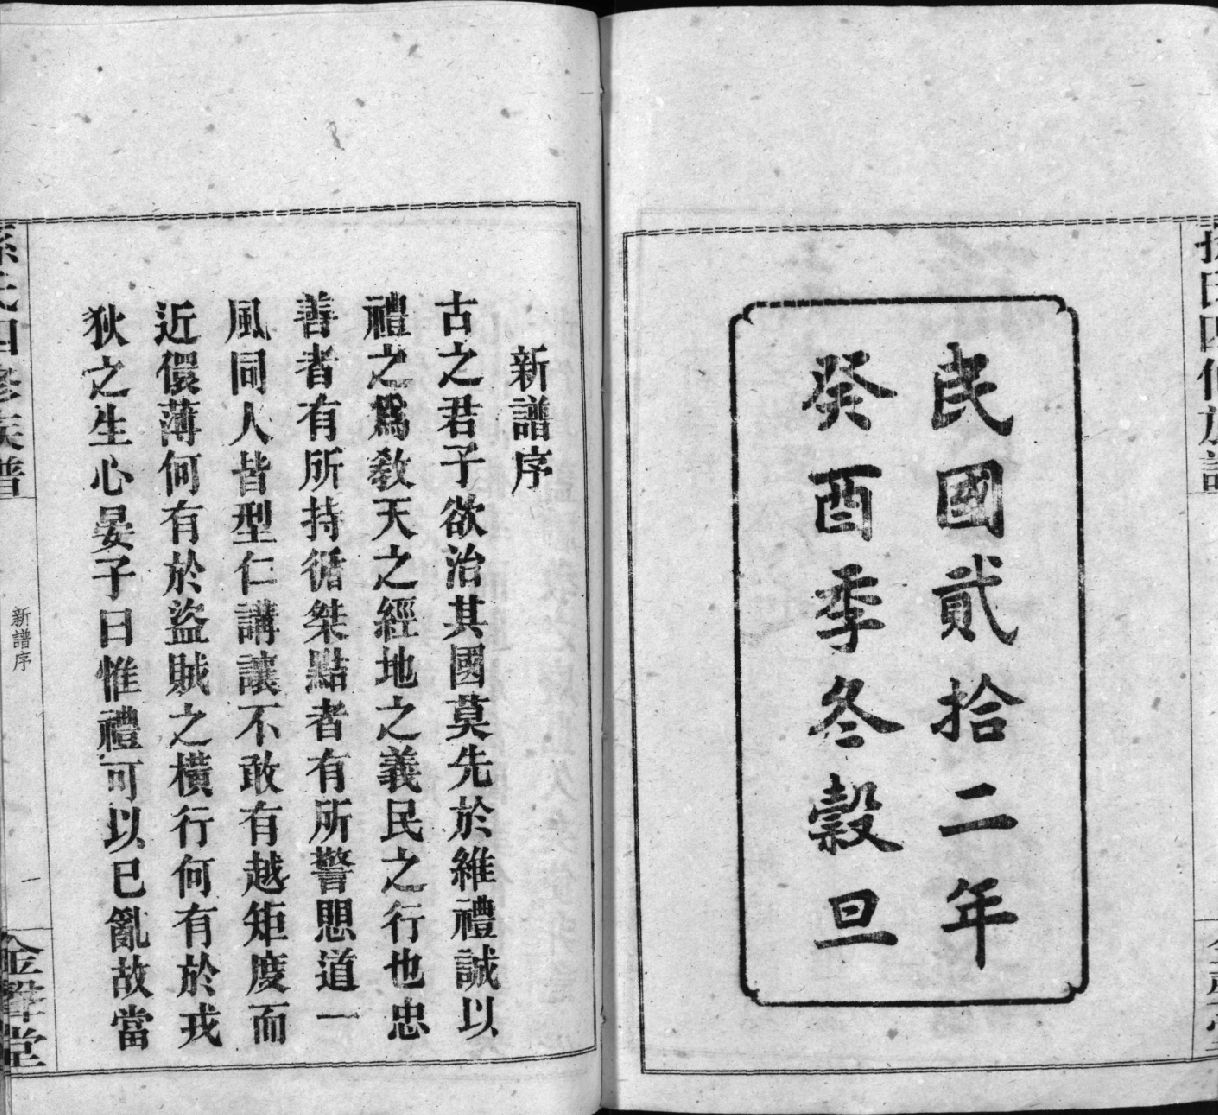 孫氏四修族譜
民國貳拾二年
癸酉季冬穀旦
新譜序
古之君子欲治其國莫先於維禮誠以
禮之爲敎天之經地之義民之行也忠
善者有所持循桀黠者有所警愳道一
風同人皆型仁講讓不敢有越矩度而
近儇薄何有於盜賊之橫行何有於戎
狄之生心晏子曰惟禮可以已亂故當
孫氏四修族譜
新譜序
一
金聲堂